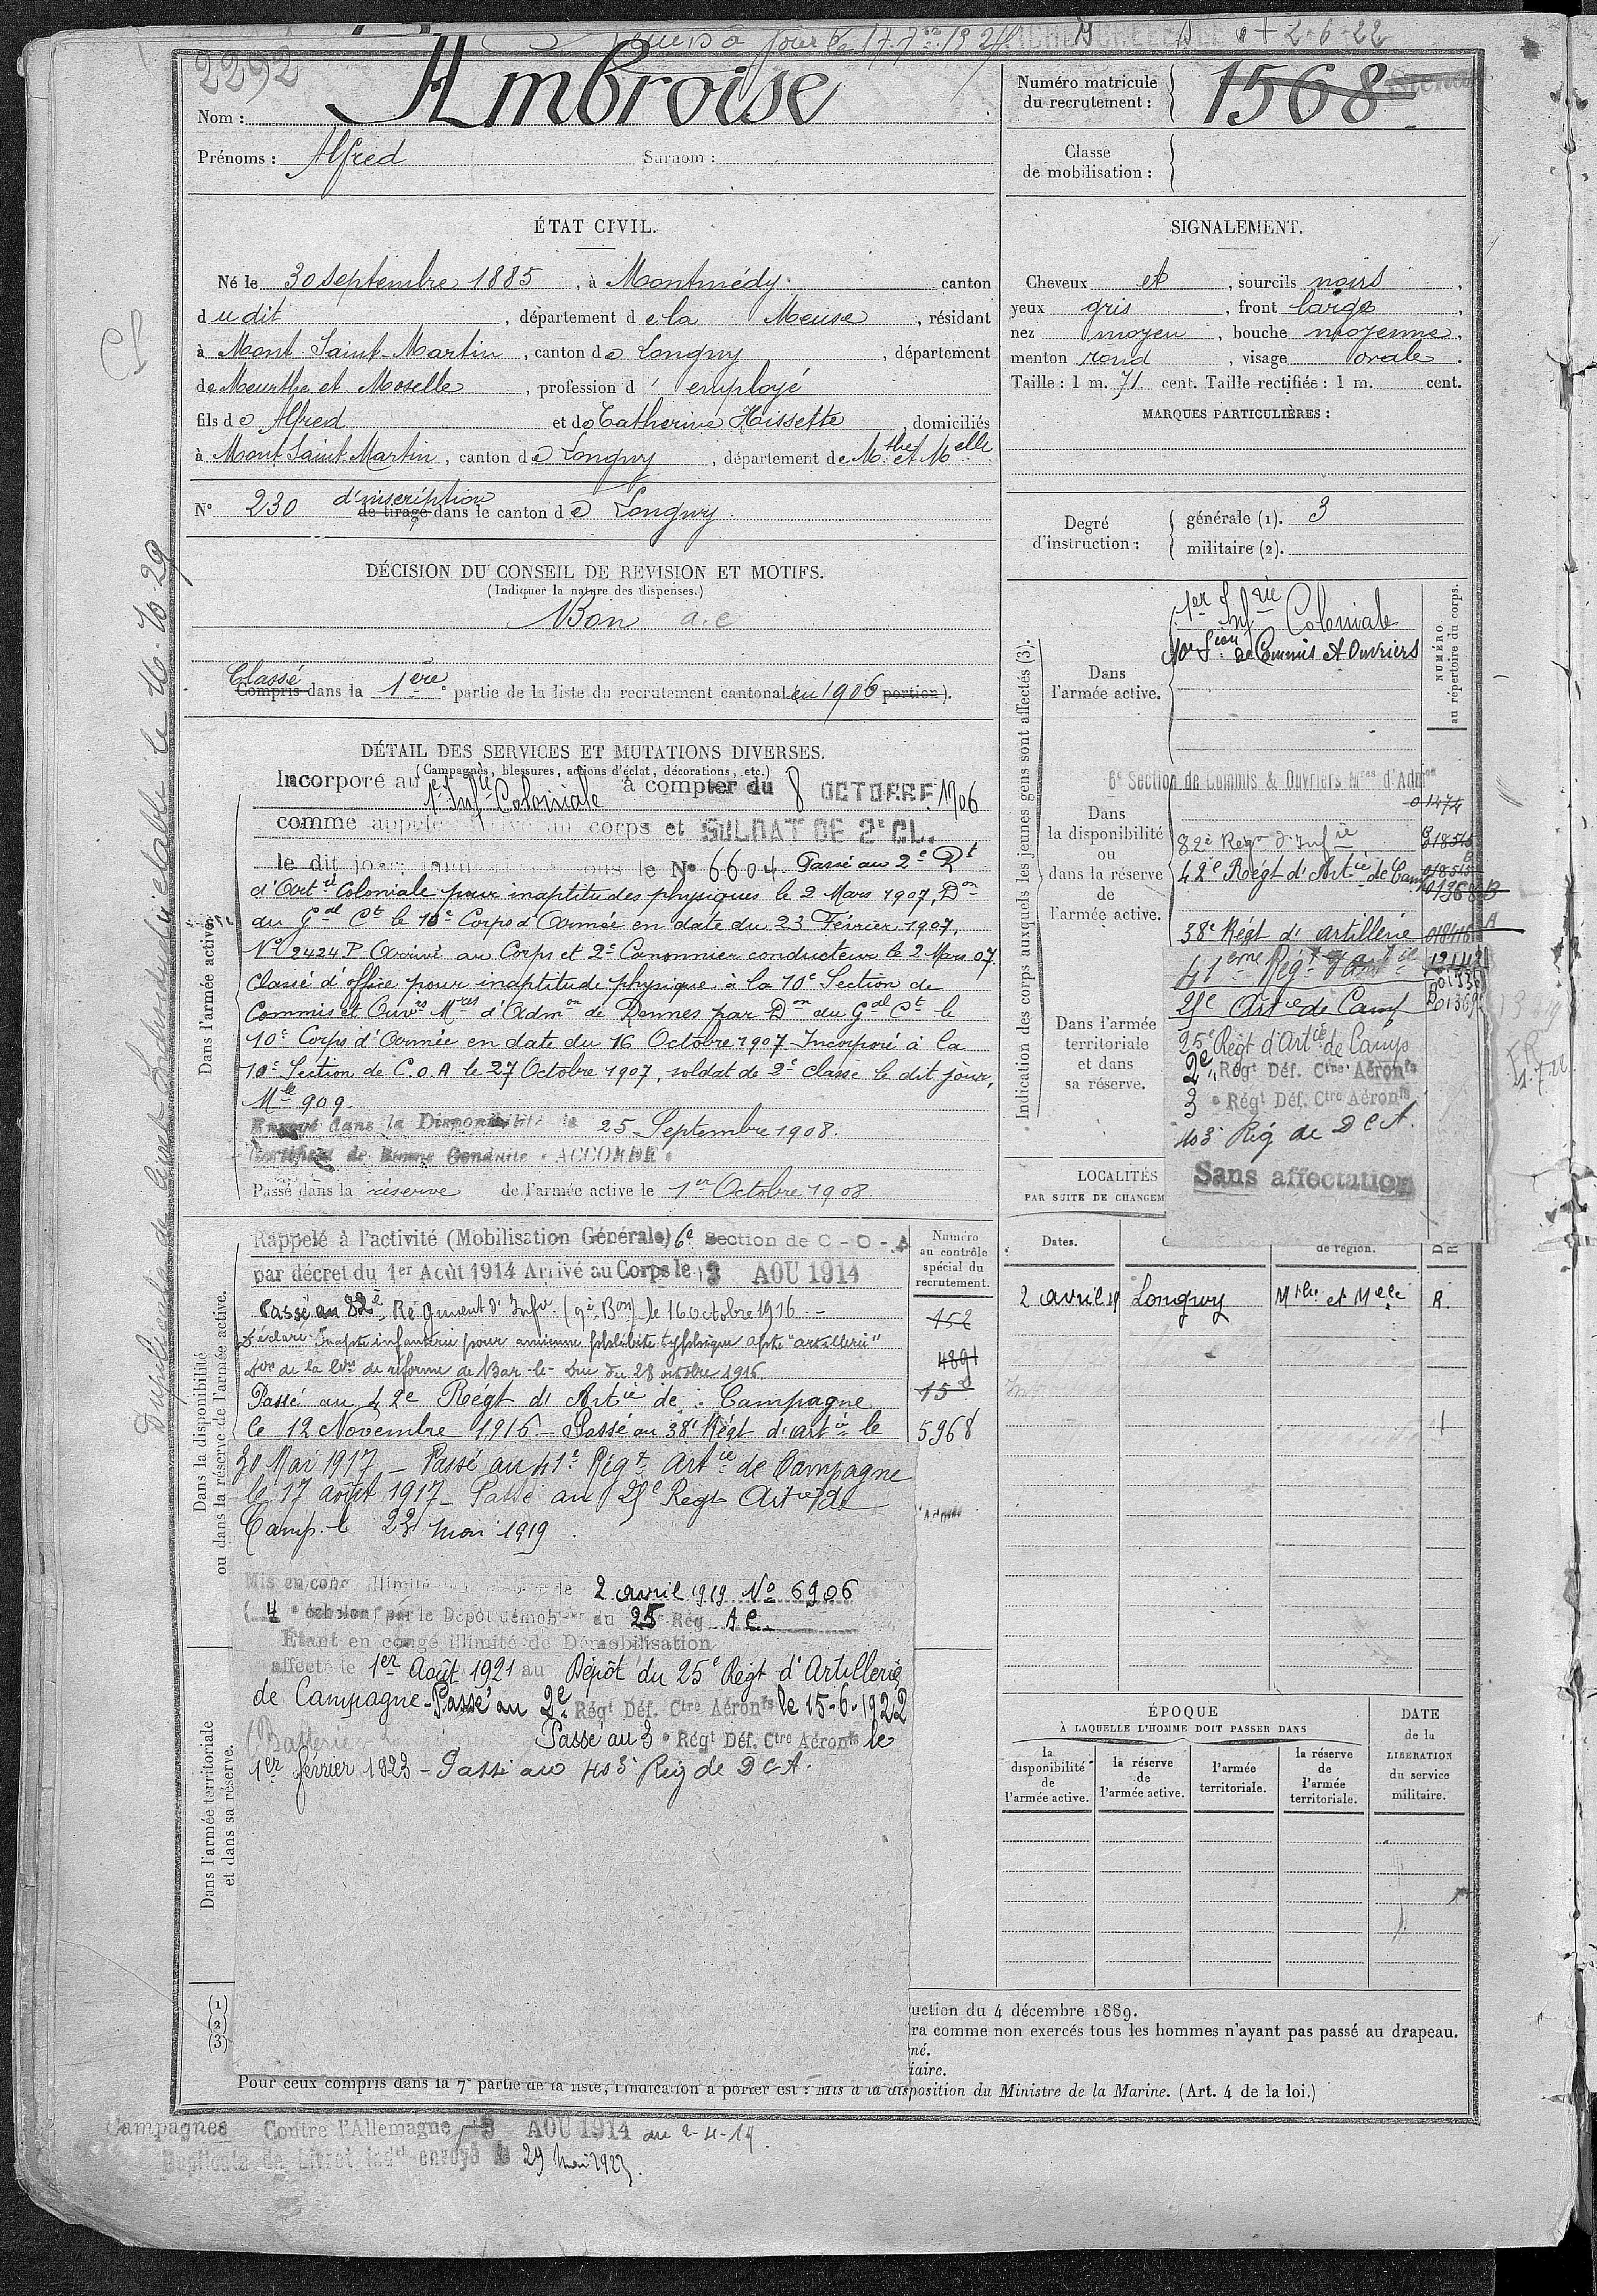 2292
Nom : Ambroise
Prénoms : Alfred Surnom :
Numéro matricule du recrutement : 1568
Classe de mobilisation :
ÉTAT CIVIL.
Né le 30 septembre 1885, à Montmédy canton
dudit, département de la Meuse, résidant
à Mont-Saint-Martin, canton de Longwy, département
de Meurthe et Moselle, profession d'employé
fils de Alfred et de Catherine Hissette, domiciliés
à Mont-Saint-Martin, canton de Longwy, département de Mthe et Melle
N° 230 d'inscription de tirage dans le canton de Longwy
SIGNALEMENT.
Cheveux et, sourcils noirs,
yeux gris, front large,
nez moyen, bouche moyenne,
menton rond, visage ovale.
Taille : 1 m. 71 cent. Taille rectifiée : 1 m. cent.
MARQUES PARTICULIÈRES :
Degré d'instruction : générale (1). 3
militaire (2).
DÉCISION DU CONSEIL DE REVISION ET MOTIFS.
(Indiquer la nature des dispenses.)
Bon a.c
Classé Compris dans la 1ère partie de la liste du recrutement cantonal en 1906 portion).
DÉTAIL DES SERVICES ET MUTATIONS DIVERSES.
(Campagnes, blessures, actions d'éclat, décorations, etc.)
Dans l'armée active.
Incorporé au 1er Infie Coloniale à compter du 8 OCTOBRE 1906
comme appelé corps et SOLDAT DE 2e CL.
le dit jour le N° 6604. Passé au 2e Rt
d'Artie Coloniale pour inaptitudes physiques le 2 Mars 1907, Don
du Gal Ct le 10e Corps d'Armée en date du 23 Février 1907,
N° 2424 P. Arrivé au Corps et 2e Canonnier conducteur le 2 Mars 07.
Classé d'office pour inaptitude physique à la 10e Section de
Commis et Ouvrs Mres d'Admon de Rennes par Don du Gal Ct le
10e Corps d'Armée en date du 16 Octobre 1907. Incorporé à la
10e Section de C.O.A le 27 Octobre 1907, soldat de 2e classe le dit jour,
Mle 909.
Envoyé dans la Disponibilité le 25 Septembre 1908.
Certificat de Bonne Conduite « ACCORDÉ »
Passé dans la réserve de l'armée active le 1er Octobre 1908
Dans la disponibilité ou dans la réserve de l'armée active.
Rappelé à l'activité (Mobilisation Générale) 6e Section de C-O-A
par décret du 1er Août 1914 Arrivé au Corps le 3 AOU 1914
Passé au 82e Régiment d'Infie (9e Bon) le 16 octobre 1916.-
Déclaré Inapte infanterie pour ancienne phlébite typhique apte "artillerie"
Don de la Con de réforme de Bar-le-Duc du 28 octobre 1916.
Passé au 42e Régt d'Artie de Campagne
le 12 Novembre 1916.- Passé au 38e Régt d'artie le
30 Mai 1917 - Passé au 41e Régt Artie de Campagne
le 17 août 1917 - Passé au 25e Regt Artie de
Camp. le 23 mars 1919.
Mis en congé illimité le 2 avril 1919 N° 6906
(4e échelon) par le Dépôt démobeur du 25e Rég A C
Étant en congé illimité de Démobilisation
affecté le 1er Août 1921 au Dépôt du 25e Régt d'Artillerie
de Campagne - Passé au 2e Régt Déf. Ctre Aéronts le 15-6-1922
(Batterie Passé au 3e Régt Déf. Ctre Aéronts le
1er février 1923 - Passé au 403e Rég de DCA.
Dans l'armée territoriale et dans sa réserve.
Numéro au contrôle spécial du recrutement.
152
4891
5968
Indication des corps auxquels les jeunes gens sont affectés (3).
NUMÉRO au répertoire du corps.
Dans l'armée active.
1er Infrie Coloniale
10e Son de Commis et Ouvriers
Dans la disponibilité ou dans la réserve de l'armée active.
6e Section de Commis & Ouvriers Mres d'Admon
01474
82e Regt d'Infie
42e Régt d'Artie de Camp
38e Régt d'artillerie
Dans l'armée territoriale et dans sa réserve.
41eme Régt d'artie
25e Artie de Camp
25e Régt d'Artie de Camp
2e Régt Déf. Ctre Aéronts
3e Régt Déf. Ctre Aéronts
403e Rég de DCA.
Sans affectation
LOCALITÉS
PAR SUITE DE CHANGEM
Dates. de région.
2 avril 19 Longwy Mthe et Melle R.
ÉPOQUE
À LAQUELLE L'HOMME DOIT PASSER DANS
la disponibilité de l'armée active.
la réserve de l'armée active.
l'armée territoriale.
la réserve de l'armée territoriale.
DATE de la LIBÉRATION du service militaire.
(1)
(2)
(3)
uction du 4 décembre 1889.
ra comme non exercés tous les hommes n'ayant pas passé au drapeau.
né.
iaire.
Pour ceux compris dans la 7e partie de la liste, l'indication à porter est : Mis à la disposition du Ministre de la Marine. (Art. 4 de la loi.)
Campagnes Contre l'Allemagne 3 AOU 1914 au 2-4-19.
Duplicata de Livret indel envoyé le 29 mai 1923.
Duplicata de livret Individuel établi le 16.10.29